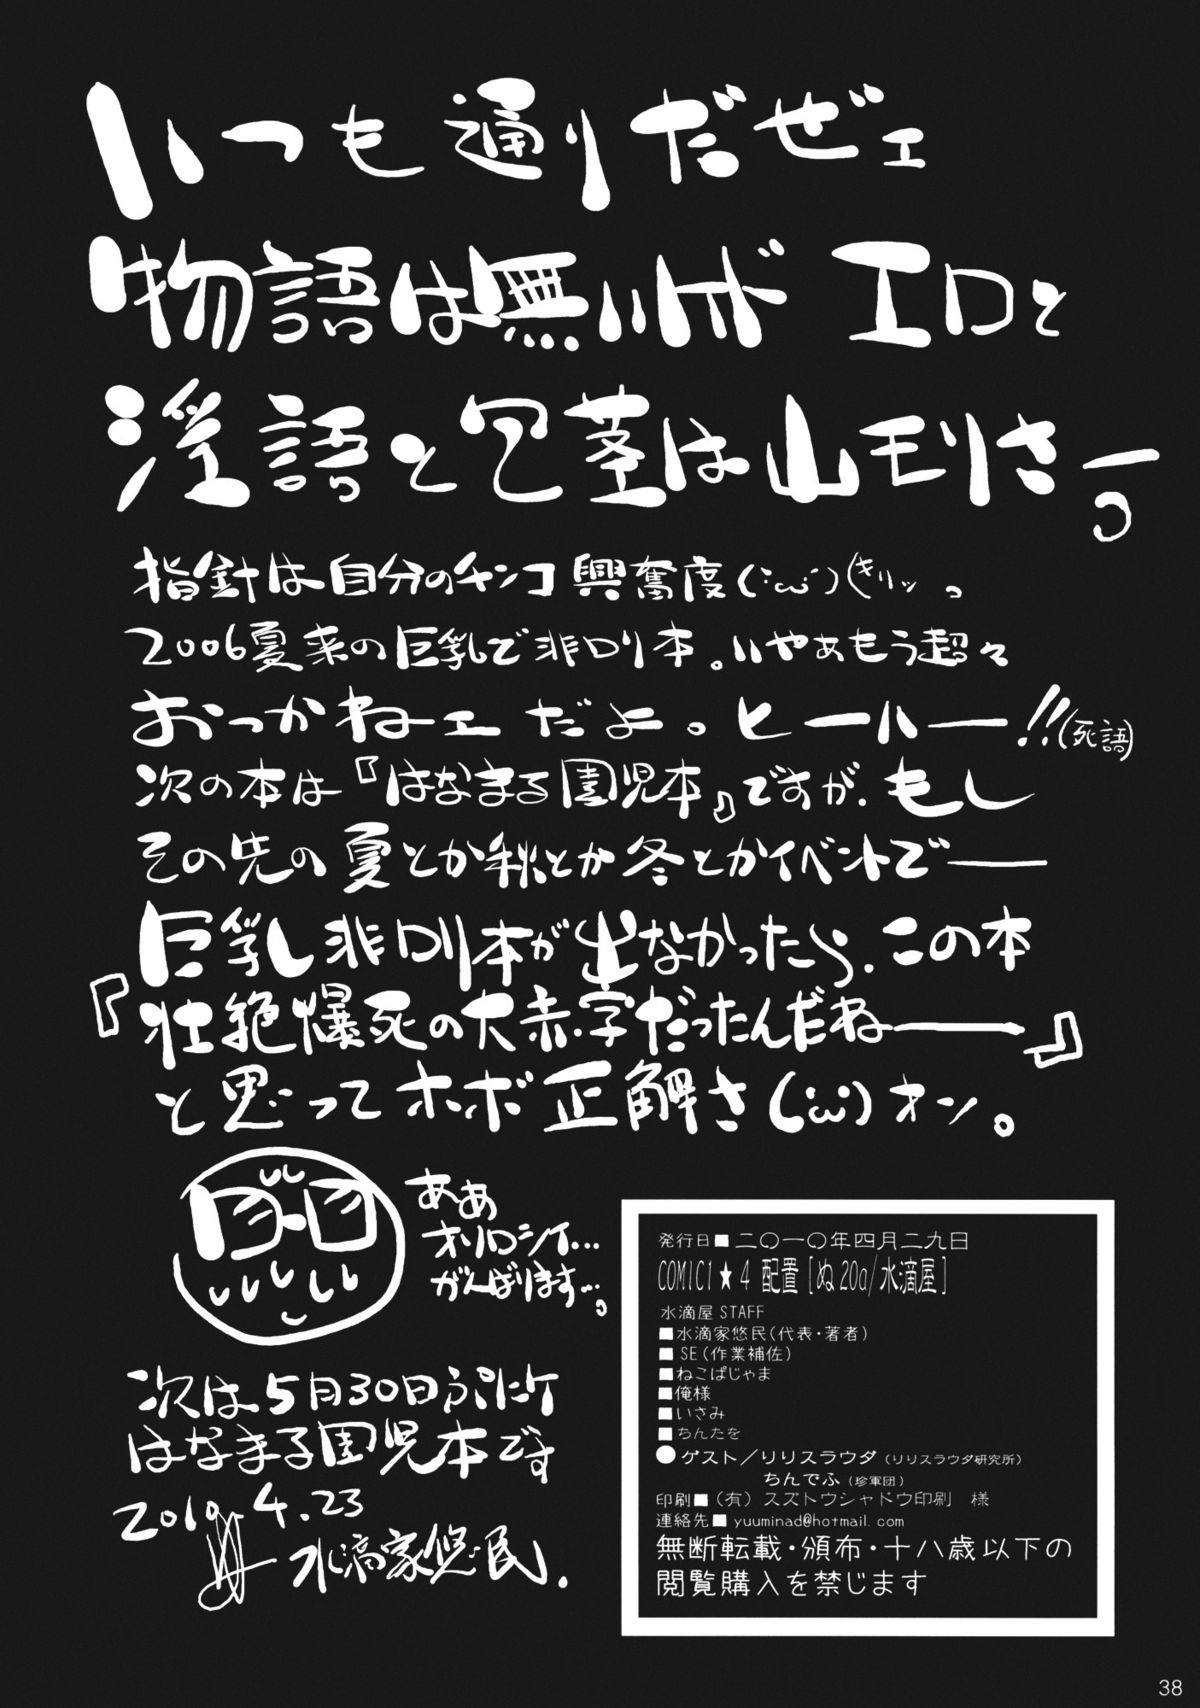 いつも通りだぜェ
物語は無いけど エロと
淫語と包茎は山モリさーっ
指針は自分のチンコ興奮度(´･ω･`)(キリッっ
2006夏来の巨乳で非ロリ本。いやぁもう超々
おっかねェだよ。ヒーハー!!(死語)
次の本は『はなまる園児本』ですが、もし
その先の夏とか秋とか冬とかイベントでー
巨乳非ロリ本が出なかったら、この本
『壮絶爆死の大赤字だったんだねー』
と思ってホボ正解さ(´･ω･`)オン。
ああ
オソロシイ…
がんばります…。
次は5月30日ぷにケ
はなまる園児本です
2010.4.23
水滴家悠民.
発行日■二〇一〇年四月二九日
COMIC1★4 配置[ぬ20a/水滴屋]
水滴屋 STAFF
■水滴家悠民(代表・著者)
■SE(作業補佐)
■ねこぱじゃま
■俺様
■いさみ
■ちんたを
●ゲスト／リリスラウダ(リリスラウダ研究所)
ちんでふ(珍軍団)
印刷■(有)スズトウシャドウ印刷 様
連絡先■yuuminad@hotmail.com
無断転載・頒布・十八歳以下の
閲覧購入を禁じます
38